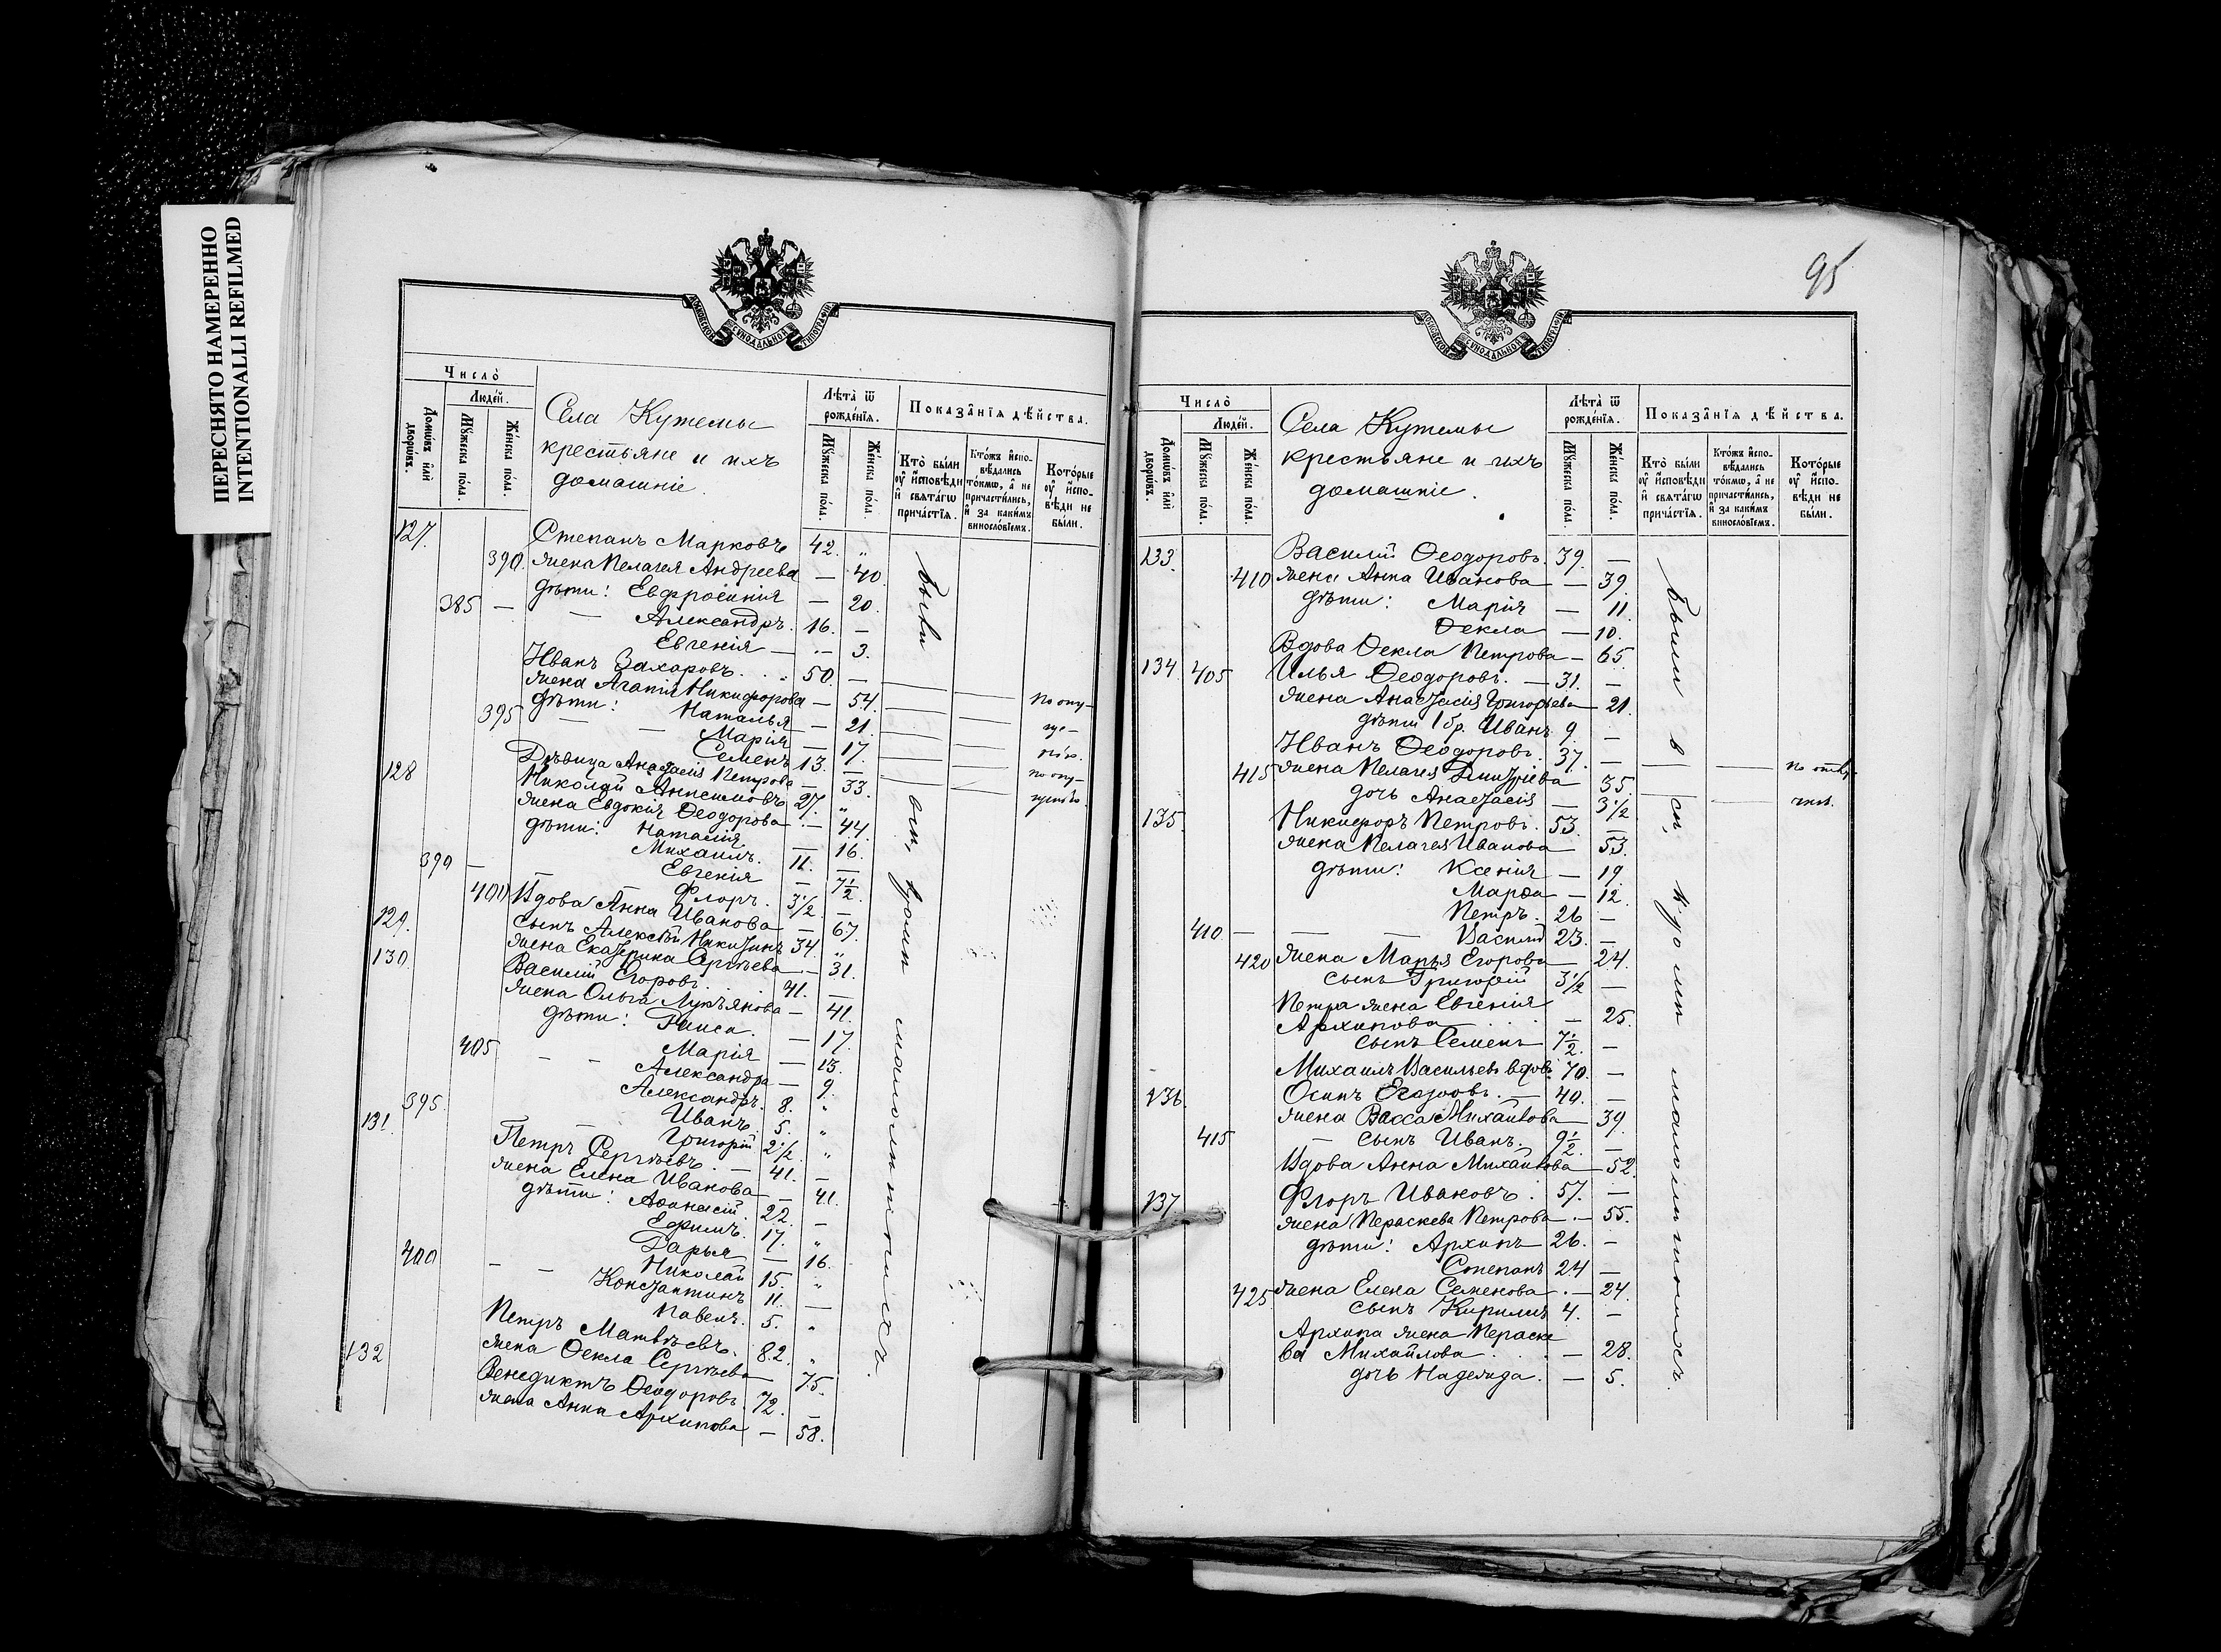 ПЕРЕСНЯТО НАМЕРЕННО
INTENTIONALLI REFILMED
МОСКОВСКОЙ СѴНОДАЛЬНОЙ ТИПОГРАФІИ
Число̀
Люде́й.
Домѡ́въ и҆лѝ дворѡ́въ.
Мꙋ́жеска по́ла.
Же́нска по́ла.
Села Кутемы
крестьяне и ихъ
домашніе.
Лѣ́та ѿ рожде́нїѧ.
Мꙋ́жеска по́ла.
Же́нска по́ла.
Показа̑нїѧ дѣ́йства.
Кто̀ бы́ли ᲂу҆ и҆́сповѣди и҆ свѧта́гѡ прича́стїѧ.
Кто́жъ и҆сповѣ́дались то́кмѡ, а҆ не причасти́лись, и҆ за каки́мъ виносло́вїемъ.
Кото́рые ᲂу҆ и҆́сповѣди не бы́ли.
127. Степанъ Марковъ 42. „
390. жена Пелагея Андреева — 40.
дѣти: Евфросинія — 20.
385 — — Александръ. 16. —
Евгенія — — 3.
Иванъ Захаровъ. . . 50. —
жена Агапія Никифорова — 54.
дѣти: Наталья — 21.
395 — Марія — 17.
Семенъ 13. —
Дѣвица Анастасія Петрова — 33.
128 Николай Анисимовъ 27. „
жена Евдокія Ѳеодорова — 44.
дѣти: Наталія — 16.
Михаилъ. 11. —
Евгенія — 7 1/2
399 — — Флоръ. 3 1/2. —
400 Вдова Анна Иванова — 67.
129. сынъ Алексѣй Никитинъ 34. „
жена Екатерина Сергѣева — 31.
130. Василій Егоровъ. . . 41. —
жена Ольга Лукъянова — 41.
дѣти: Раиса. — 17.
405 — — Марія — 13.
Александра — 9.
Александръ. 8. „
395. Иванъ. 5. „
— Григорій 2 1/2. „
131. Петръ Сергѣевъ. — 41. —
жена Елена Иванова — 41.
дѣти: Аѳанасій. 22. —
Ефимъ. 17. „
Дарья — 16.
400 — — Николай 15. „
Константинъ 11. —
Павелъ. 5. „
Петръ Матвѣевъ. 82. „
жена Ѳекла Сергѣева 75.
132 Венедиктъ Ѳеодоровъ. 72. —
жена Анна Архипова — 58.
Были
вси, кроми малолѣтнихъ.
по опу-
ще-
нію.
по опу-
95
МОСКОВСКОЙ СѴНОДАЛЬНОЙ ТИПОГРАФІИ
Число̀
Люде́й.
Домѡ́въ и҆лѝ дворѡ́въ.
Мꙋ́жеска по́ла.
Же́нска по́ла.
Села Кутемы
крестьяне и ихъ
домашніе.
Лѣ́та ѿ рожде́нїѧ.
Мꙋ́жеска по́ла.
Же́нска по́ла.
Показа̑нїѧ дѣ́йства.
Кто̀ бы́ли ᲂу҆ и҆́сповѣди и҆ свѧта́гѡ прича́стїѧ.
Кто́жъ и҆сповѣ́дались то́кмѡ, а҆ не причасти́лись, и҆ за каки́мъ виносло́вїемъ.
Кото́рые ᲂу҆ и҆́сповѣди не бы́ли.
133. Василій Ѳеодоровъ. 39. —
410 жена Анна Иванова — 39.
дѣти: Марія — 11.
Ѳекла — 10.
Вдова Ѳекла Петрова — 65.
134 405 Илья Ѳеодоровъ. — 31. —
жена Анастасія Григорьева — 21.
дѣти 1 бр. Иванъ 9. —
Иванъ Ѳеодоровъ. 37. —
415 жена Пелагея Димитріева 35.
дочь Анастасія — 3 1/2
135. Никифоръ Петровъ. 53. —
жена Пелагея Иванова 53.
дѣти: Ксенія — 19
Марѳа — 12.
Петръ. 26 —
410 — — — Василій 23. —
420 жена Марья Егорова — 24.
сынъ Григорій 3 1/2 —
Петра жена Евгенія
Архипова . . . . — 25.
сынъ Семенъ 7 1/2. —
Михаилъ Васильевъ вдовъ. 70. —
136. Осипъ Егоровъ. — 40. —
жена Васса Михайлова — 39.
415 — сынъ Иванъ. 9 1/2. —
Вдова Анна Михайлова — 52
137 Флоръ Ивановъ. 57. —
жена Параскева Петрова — 55.
дѣти: Архипъ 26. —
Степанъ 24 —
425 жена Елена Семенова — 24.
сынъ Кириллъ 4. —
Архипа жена Параске
ва Михайлова . . . — 28.
дочь Надежда. — 5.
Были вси, кроми малолѣтнихъ.